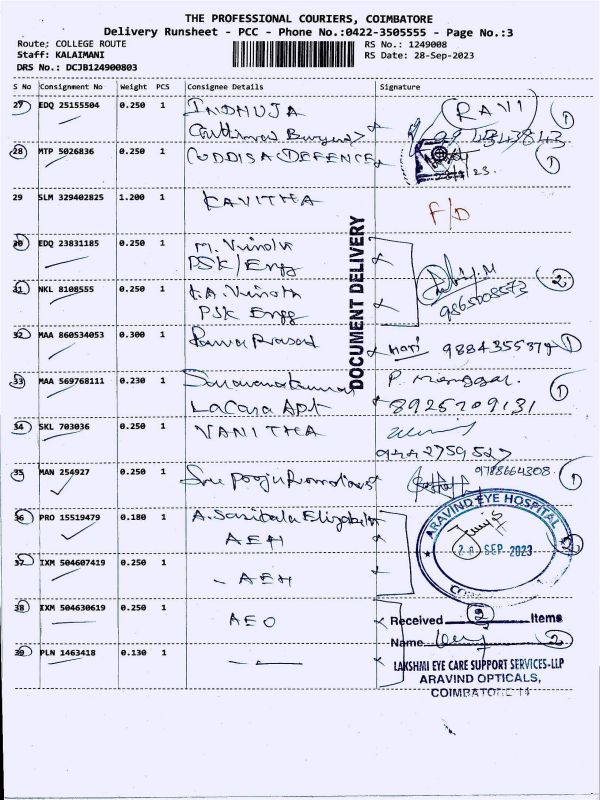 THE PROFESSIONAL COURIERS, COIMBATORE
Delivery Runsheet - PCC - Phone No.:0422-3505555 - Page No.:3
Route; COLLEGE ROUTE
RS No.: 1249008
Staff: KALAIMANI
RS Date: 28-Sep-2023
DRS No.: DCJB124900803
S No Consignment No Weight PCS Consignee Details Signature
27 EDQ 25155504 0.250 1 INDHUJA RAVI 1
28 MTP 5026836 0.250 1 CUDDISA DEFENCE 1
29 SLM 329402825 1.200 1 KAVITHA F/D
DOCUMENT DELIVERY
30 EDQ 23831185 0.250 1 M. Vinoth
PSK/Engg
31 NKL 8108555 0.250 1 K.A. Vinoth 2
PSK Engg
32 MAA 860534053 0.300 1 Prasad Hari 1
33 MAA 569768111 0.230 1 Saravanakumar P.
Lacasa Apt 8925209131 1
34 SKL 703036 0.250 1 VANITHA
9442759527
35 MAN 254927 0.250 1 Sree 9788664308 1
36 PRO 15519479 0.180 1 A. Elizabeth
AEH
ARAVIND EYE HOSPITAL
28 SEP 2023 2
37 IXM 504607419 0.250 1 - AEH
38 IXM 504630619 0.250 1 AEO
Received 2 Items
Name 2
39 PLN 1463418 0.130 1
LAKSHMI EYE CARE SUPPORT SERVICES-LLP
ARAVIND OPTICALS,
COIMBATORE-14